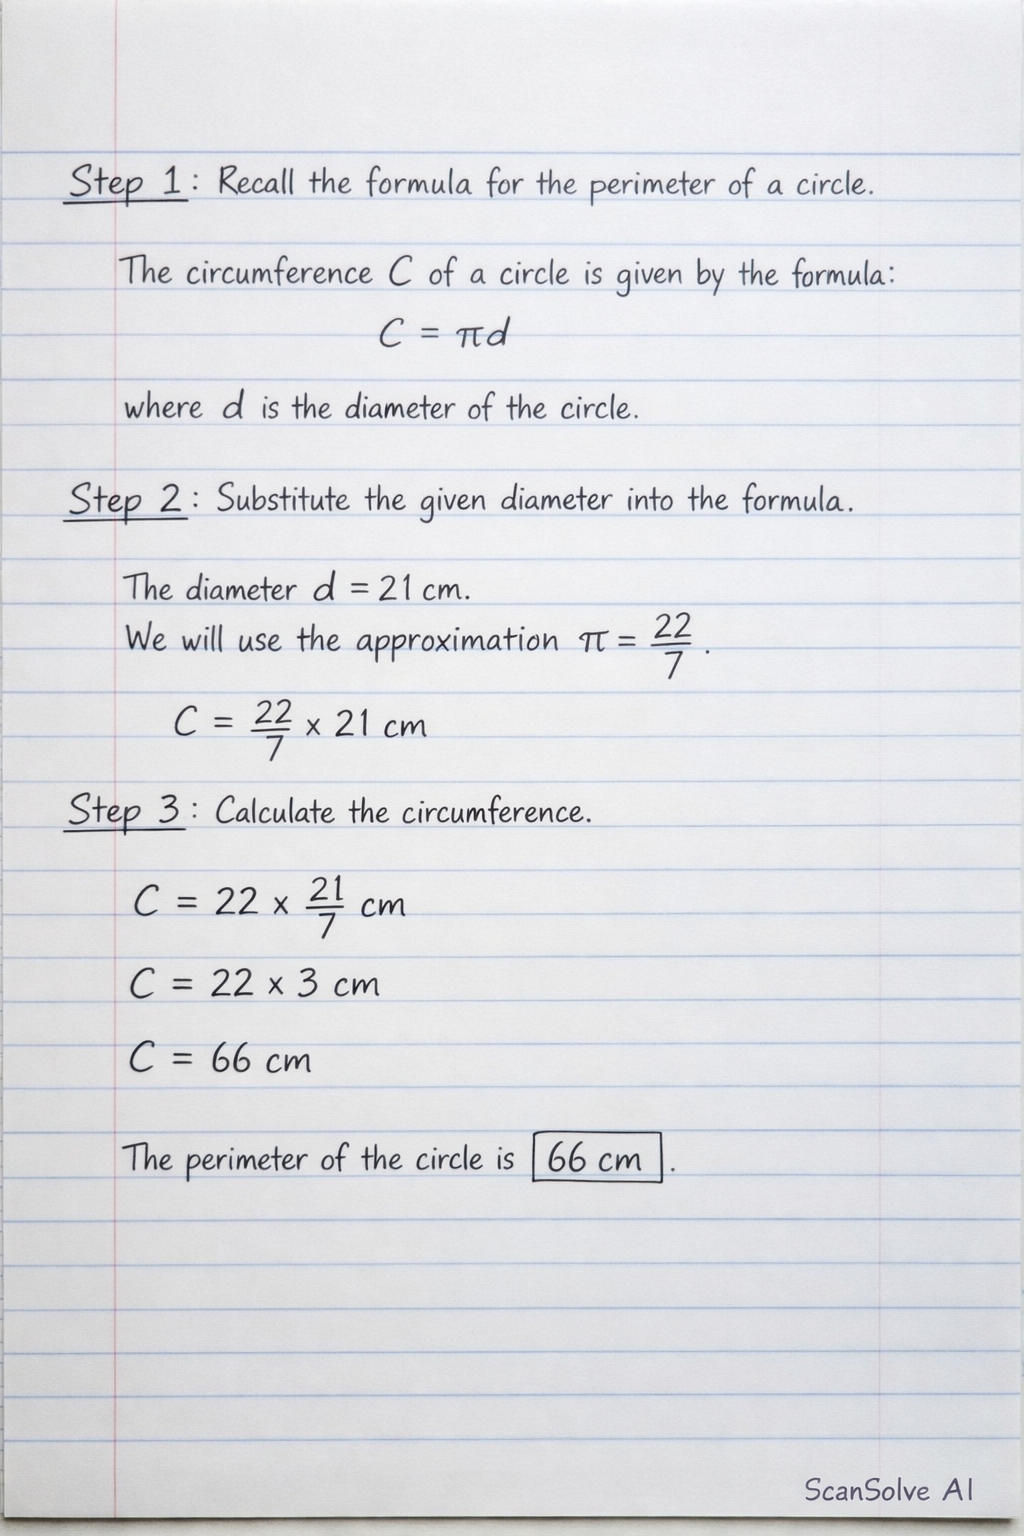 Step 1: Recall the formula for the perimeter of a circle.
The circumference C of a circle is given by the formula:
C = πd
where d is the diameter of the circle.
Step 2: Substitute the given diameter into the formula.
The diameter d = 21 cm.
We will use the approximation π = 22/7.
C = 22/7 x 21 cm
Step 3: Calculate the circumference.
C = 22 x 21/7 cm
C = 22 x 3 cm
C = 66 cm
The perimeter of the circle is 66 cm.
ScanSolve AI